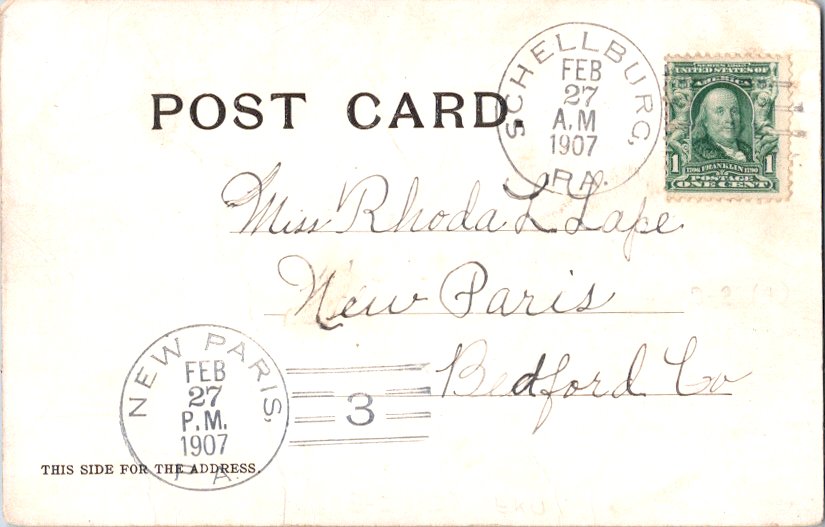 POST CARD.
SCHELLBURG,
FEB
27
A.M
1907
PA.
SERIES 1902
UNITED STATES OF
AMERICA
1706 FRANKLIN 1790
1 POSTAGE 1
ONE CENT
Miss Rhoda L Lape
New Paris
Bedford Co
NEW PARIS,
FEB
27
P.M.
1907
PA.
3
THIS SIDE FOR THE ADDRESS.